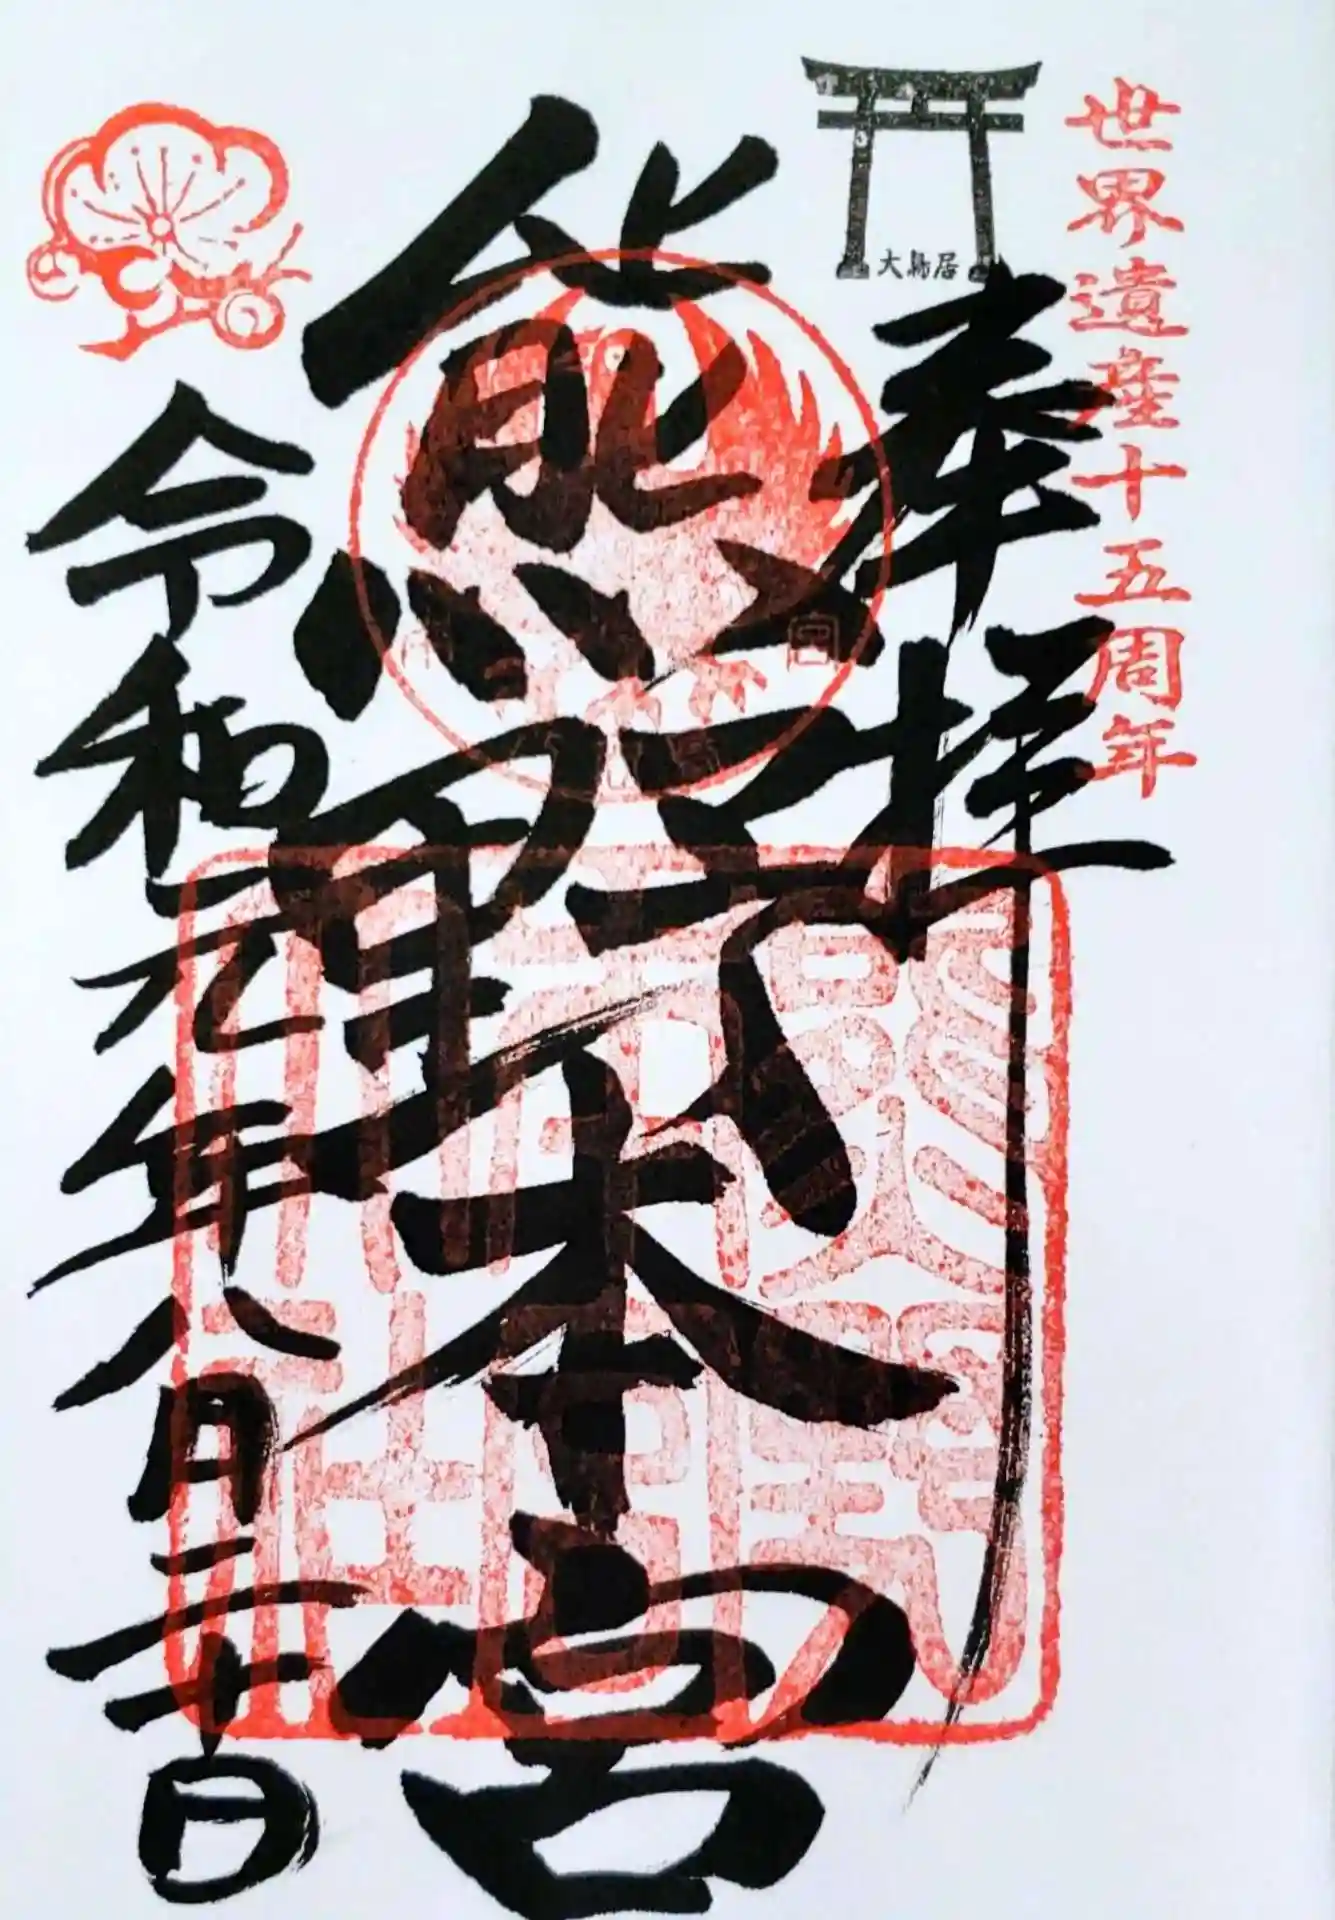 世界遺産十五周年
大鳥居
奉拝
熊野本宮
令和元年八月二十日